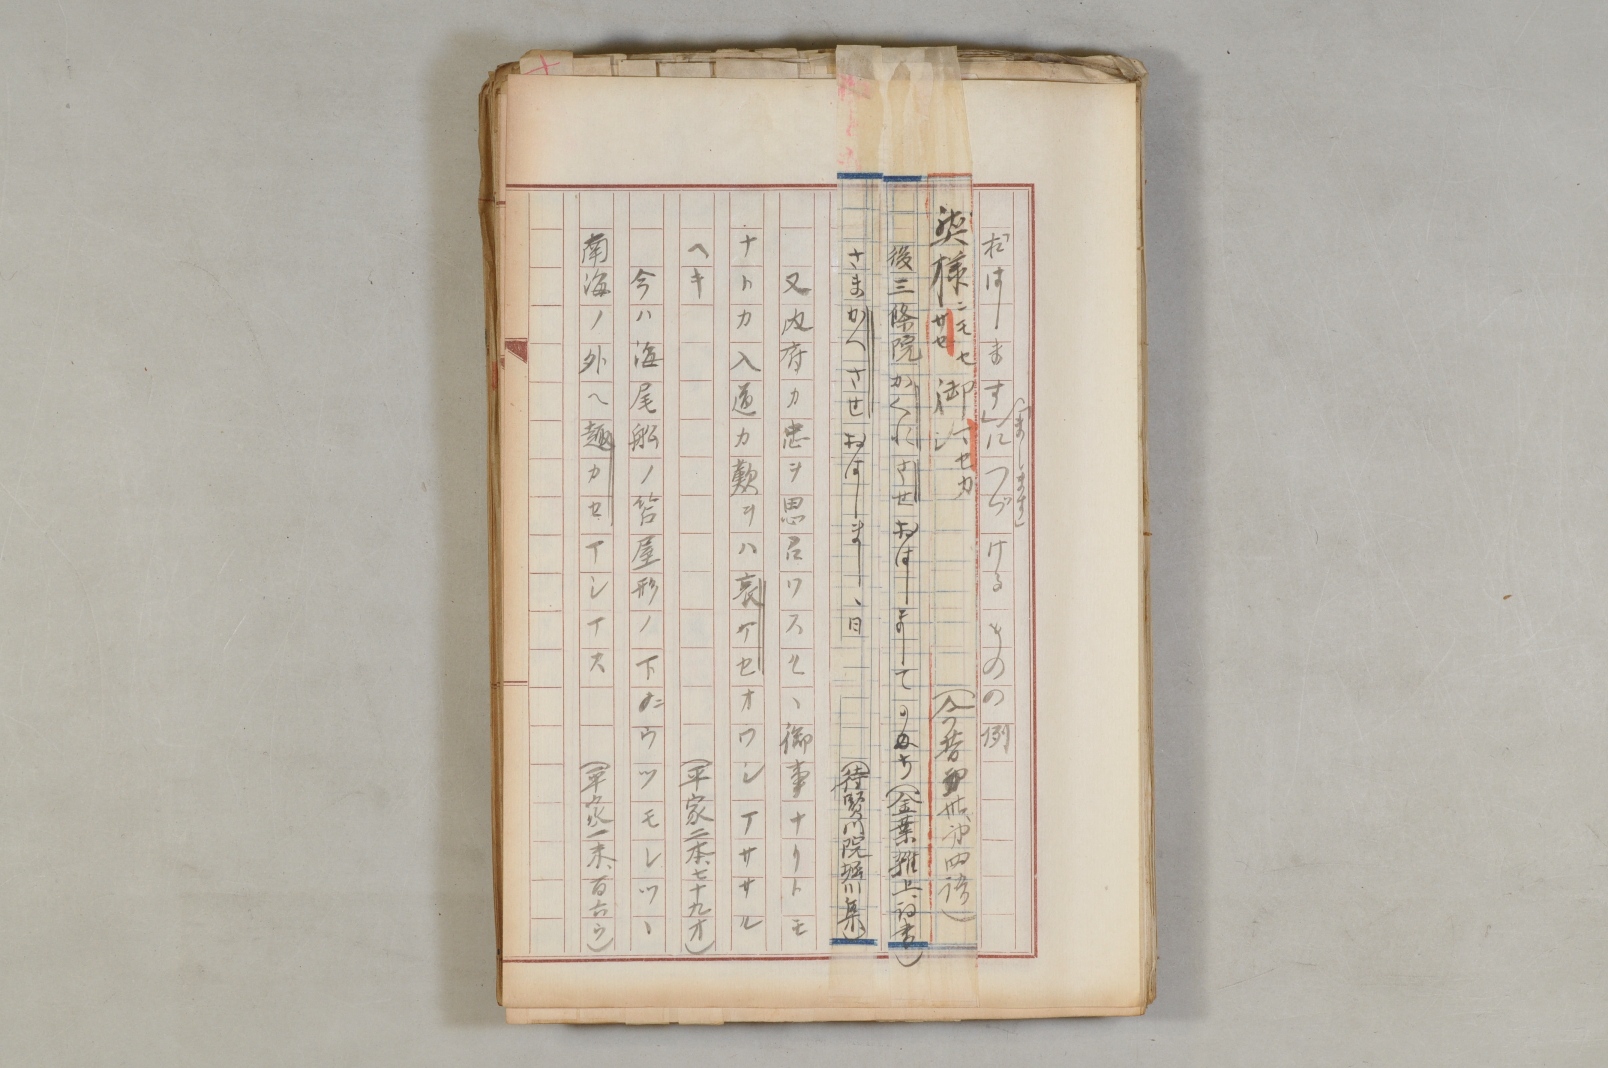 「おはします」につゞけるものの例
「まします」
奘様ニモセ御
後三條院かくれさせおはしましてのち(金葉雑上詞書)
さまかへさせおはしましゝ日 (待賢門院堀川集)
又内府カ忠ヲ思召ワスレヽ御事ナリトモ
ナトカ入道カ歎ヲハ哀ケセオワシアササル
ヘキ (平家二本七十九オ)
今ハ海尾船ノ笘屋形ノ下ニウツモレツヽ
南海ノ外ヘ趣カセ (平家一末百六ウ)